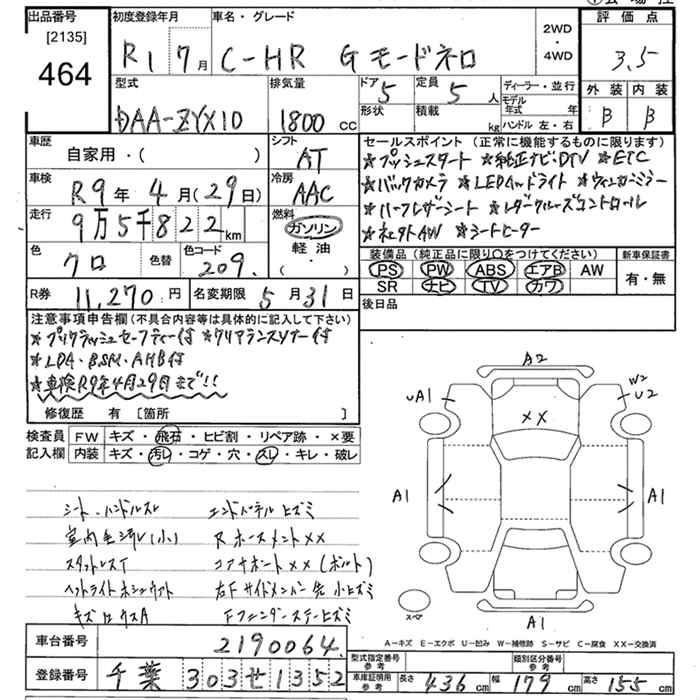 出品番号
[2135]
464
初度登録年月
R1 7月
車名・グレード
C-HR G モードネロ
2WD
・
4WD
評価点
3.5
外装 内装
B B
型式
DAA-ZYX10
排気量
1800 cc
ドア 5
形状
定員 5 人
積載 kg
ディーラー・並行
モデル年式 年
ハンドル 左・右
車歴
自家用・( )
シフト
AT
車検
R9年 4月(29日)
冷房
AAC
走行
9万5千822km
燃料
ガソリン
軽油
・( )
色
クロ
色替
色コード
209
R券 11,270円
名変期限 5月31日
セールスポイント (正常に機能するものに限ります)
★プッシュスタート ★純正ナビ・DTV ★ETC
★バックカメラ ★LEDヘッドライト ★ウィンカーミラー
★ハーフレザーシート ★レーダークルーズコントロール
★シートヒーター
装備品 (純正品に限り○をつけてください)
PS PW ABS エアB AW
SR ナビ TV カワ
新車保証書
有・無
後日品
注意事項申告欄 (不具合内容等は具体的に記入して下さい)
★プリクラッシュセーフティー付 ★クリアランスソナー付
★LDA・BSM・AHB付
★車検R9年4月29日まで!!
修復歴 有 [箇所 ]
検査員記入欄
FW キズ・飛石・ヒビ割・リペア跡・×要
内装 キズ・汚レ・コゲ・穴・スレ・キレ・破レ
シート、ハンドルスレ
室内毛汚レ(小)
スタットレスT
キズ
エンドパネルヒズミ
Rホースメント××
コアサポート××(ボルト)
右FサイドメンバーF先小ヒズミ
Fフェンダーステーヒズミ
A2
UA1
W2
U2
××
A1
A1
A1
スペア
A-キズ E-エクボ U-凹み W-補修跡 S-サビ C-腐食 XX-交換済
車台番号 2190064
登録番号 千葉 303 せ 1352
型式指定番号 参考
類別区分番号 参考
車庫証明用 参考 長さ 436 cm 幅 179 cm 高さ 155 cm